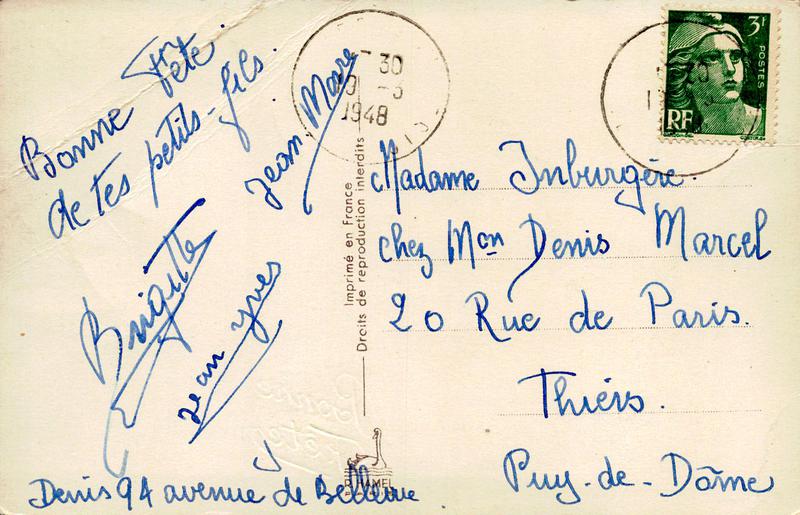 Bonne Fête
de tes petits-fils.
Jean Marc
Brigitte
Jean Yves
Denis 94 avenue de Bellevue
Imprimé en France
Droits de reproduction interdits
30
1948
3F
POSTES
RF
Madame Inburgère.
chez Mon Denis Marcel
20 Rue de Paris.
Thiers.
Puy-de-Dôme
Bonne
Fête